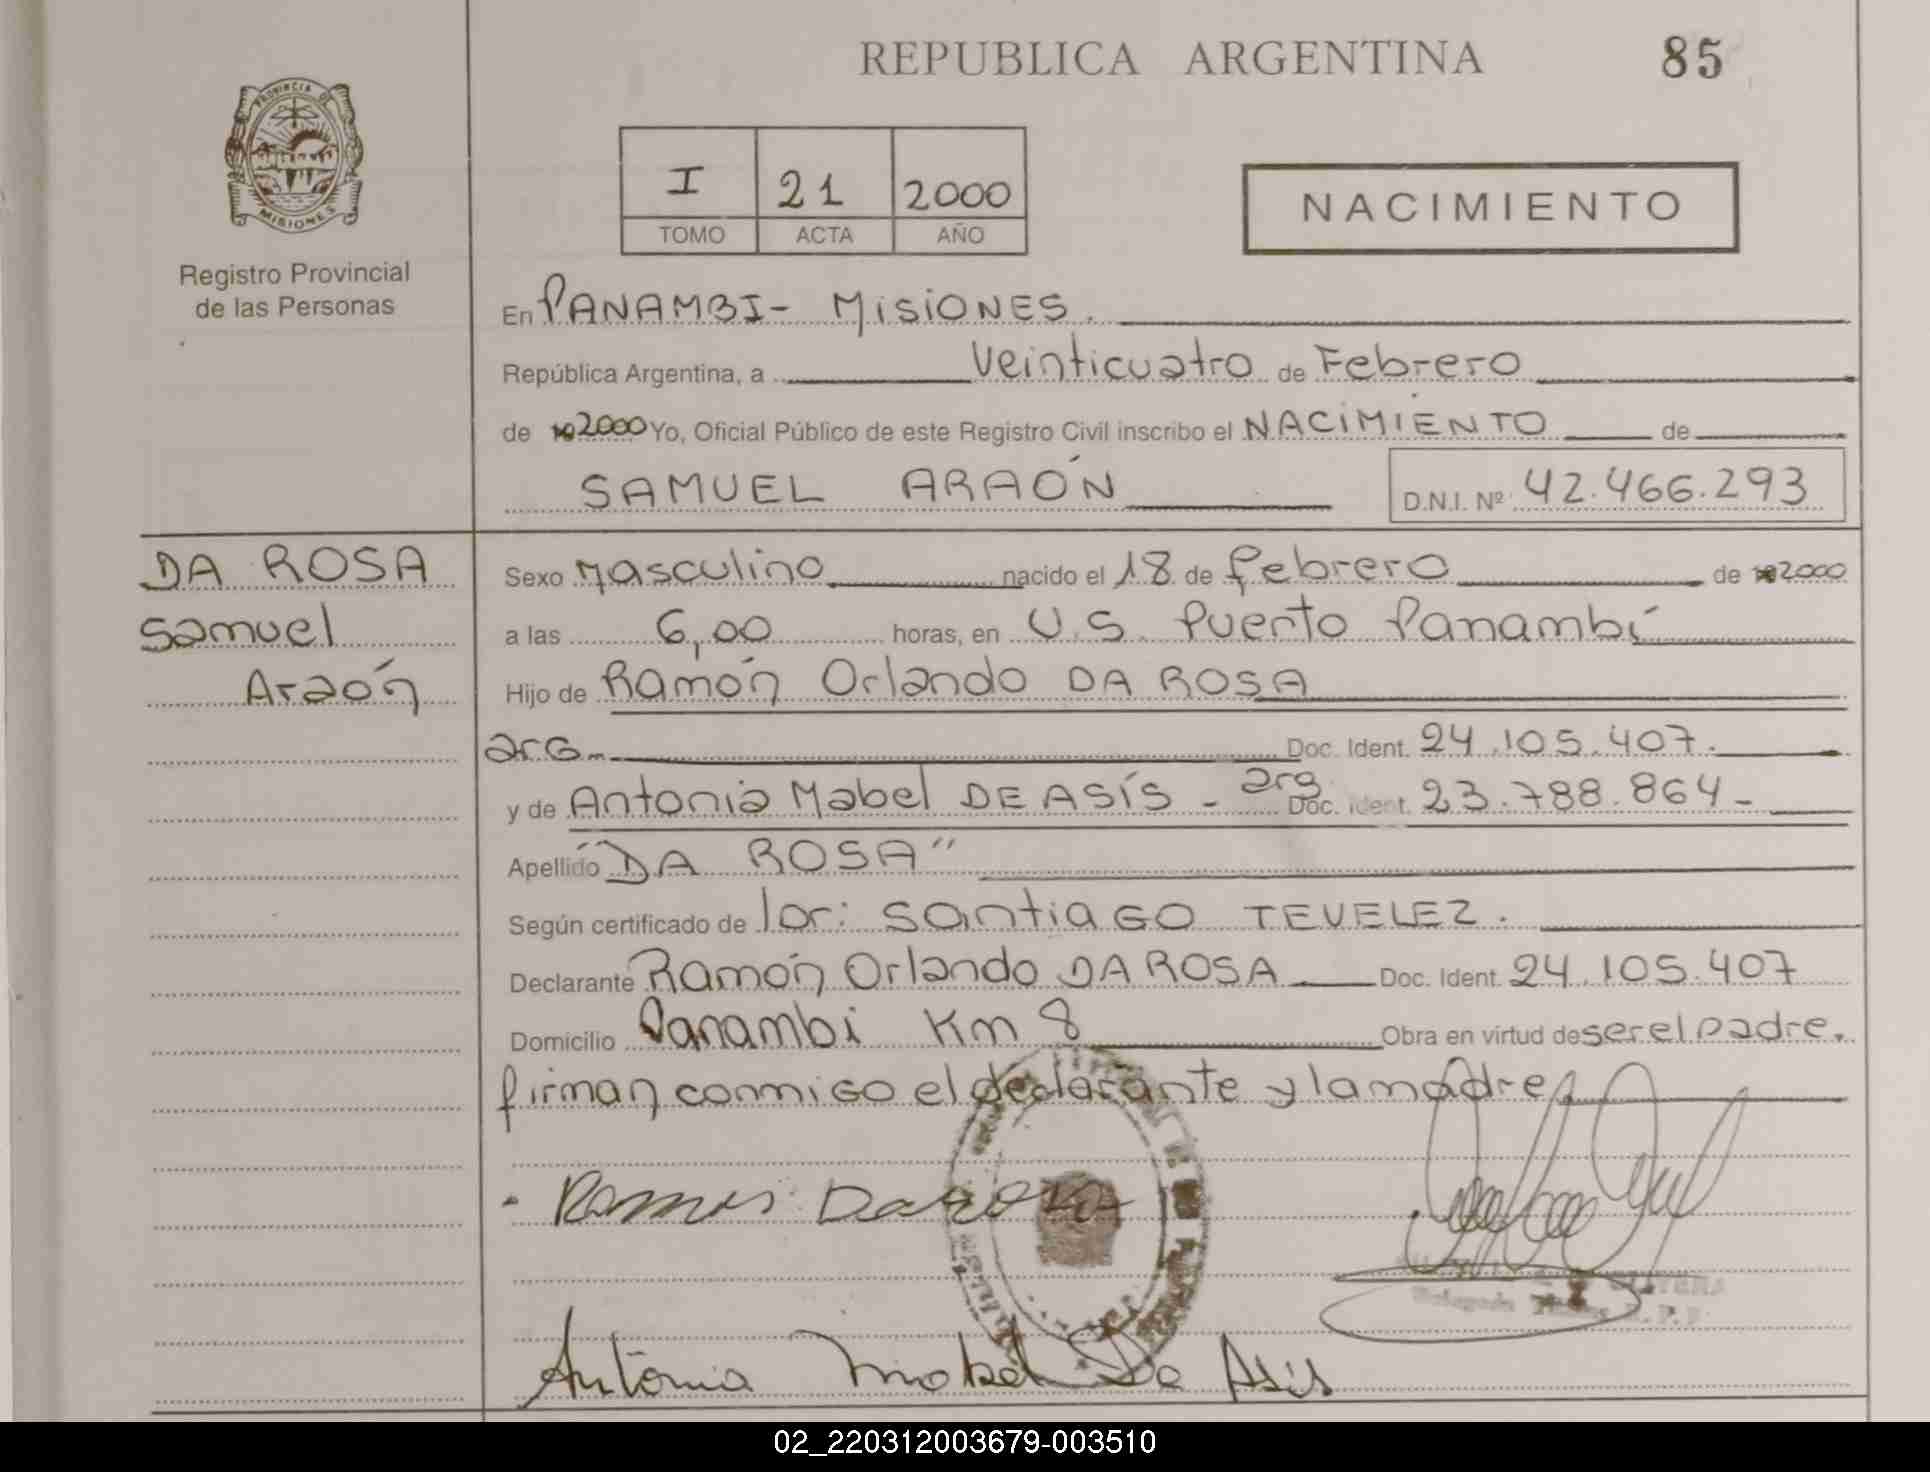 REPUBLICA ARGENTINA 85
PROVINCIA DE
MISIONES
Registro Provincial
de las Personas
I 21 2000
TOMO ACTA AÑO
NACIMIENTO
En PANAMBI - MISIONES.
República Argentina, a Veinticuatro de Febrero
de 2000 Yo, Oficial Público de este Registro Civil inscribo el NACIMIENTO de
SAMUEL ARAÓN D.N.I. Nº 42.466.293
DA ROSA
Samuel
Araón
Sexo Masculino nacido el 18 de febrero de 2000
a las 6,00 horas, en U.S. Puerto Panambí
Hijo de Ramón Orlando DA ROSA
arg. Doc. Ident. 24.105.407.
y de Antonia Mabel DE ASÍS - arg Doc. ident. 23.788.864-
Apellido "DA ROSA"
Según certificado de Santiago TEVELEZ.
Declarante Ramón Orlando DA ROSA Doc. Ident. 24.105.407
Domicilio Panambi Km 8 Obra en virtud de ser el padre.
firman conmigo el declarante y la madre
Ramon Da rosa
Delegado Titular R. P. P
Antonia Mabel De Asis
02_220312003679-003510